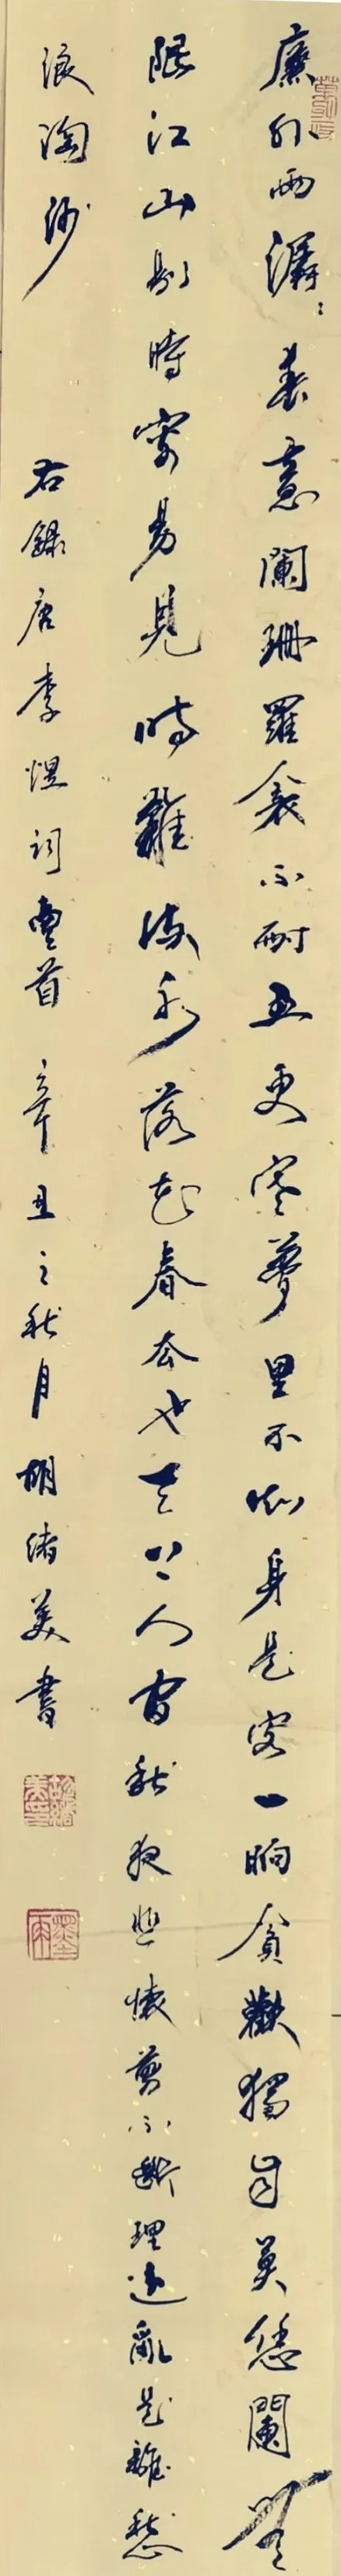 廉外雨潺〻春意闌珊羅衾不耐五更寒夢里不知身是客一晌貪歡獨自莫憑闌無
限江山別時容易見時難流水落花春去也天上人間秋夜悲懷剪不斷理還亂是離愁
浪淘沙 右錄唐李煜詞壹首 辛丑之秋月 胡緒美書